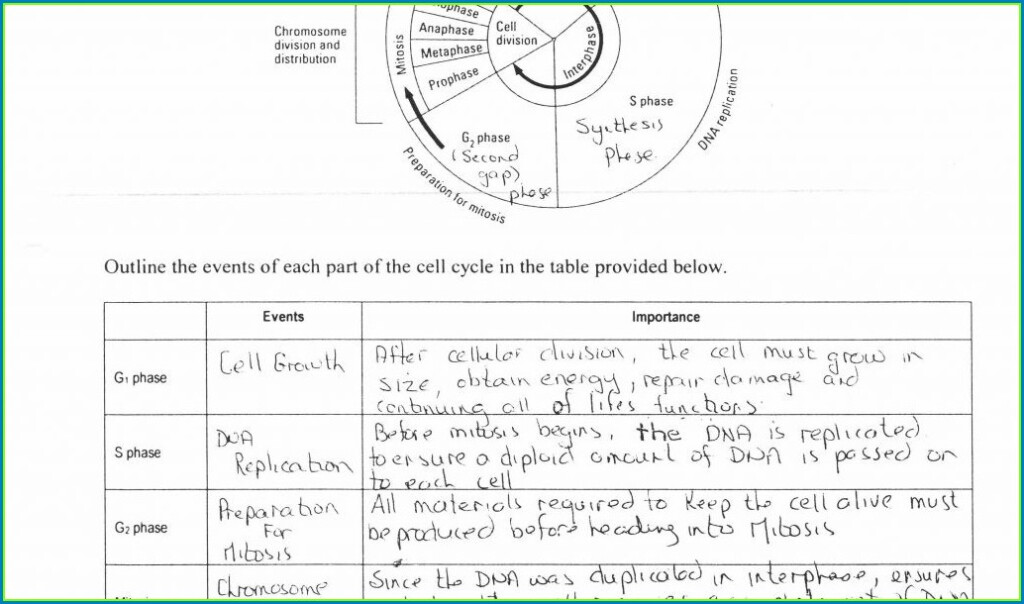 Chromosome
division and
distribution
Mitosis
Anaphase
Metaphase
Prophase
Cell
division
Interphase
S phase
Synthesis
Phase.
DNA replication
G₂ phase
(Second
gap)
phase
Preparation for mitosis
Outline the events of each part of the cell cycle in the table provided below.
Events
Importance
G₁ phase
Cell Growth
After cellular division, the cell must grow in
size, obtain energy, repair damage and
continuing all of lifes functions.
S phase
DNA
Replication
Before mitosis begins, the DNA is replicated
to ensure a diploid amount of DNA is passed on
to each cell
G₂ phase
Preparation
For
Mitosis
All materials required to keep the cell alive must
be produced before heading into Mitosis
Chromosome
Since the DNA was duplicated in interphase, ensures